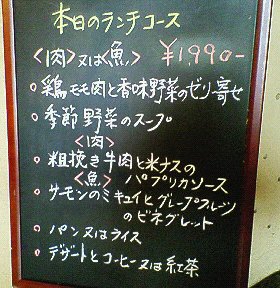 本日のランチコース
〈肉〉又は〈魚〉 ¥1,990-
○ 鶏モモ肉と香味野菜のゼリー寄せ
○ 季節野菜のスープ
〈肉〉
○ 粗挽き牛肉と米ナスの
パプリカソース
〈魚〉
○ サーモンのミキュイとグレープフルーツ
のビネグレット
○ パン又はライス
○ デザートとコーヒー又は紅茶